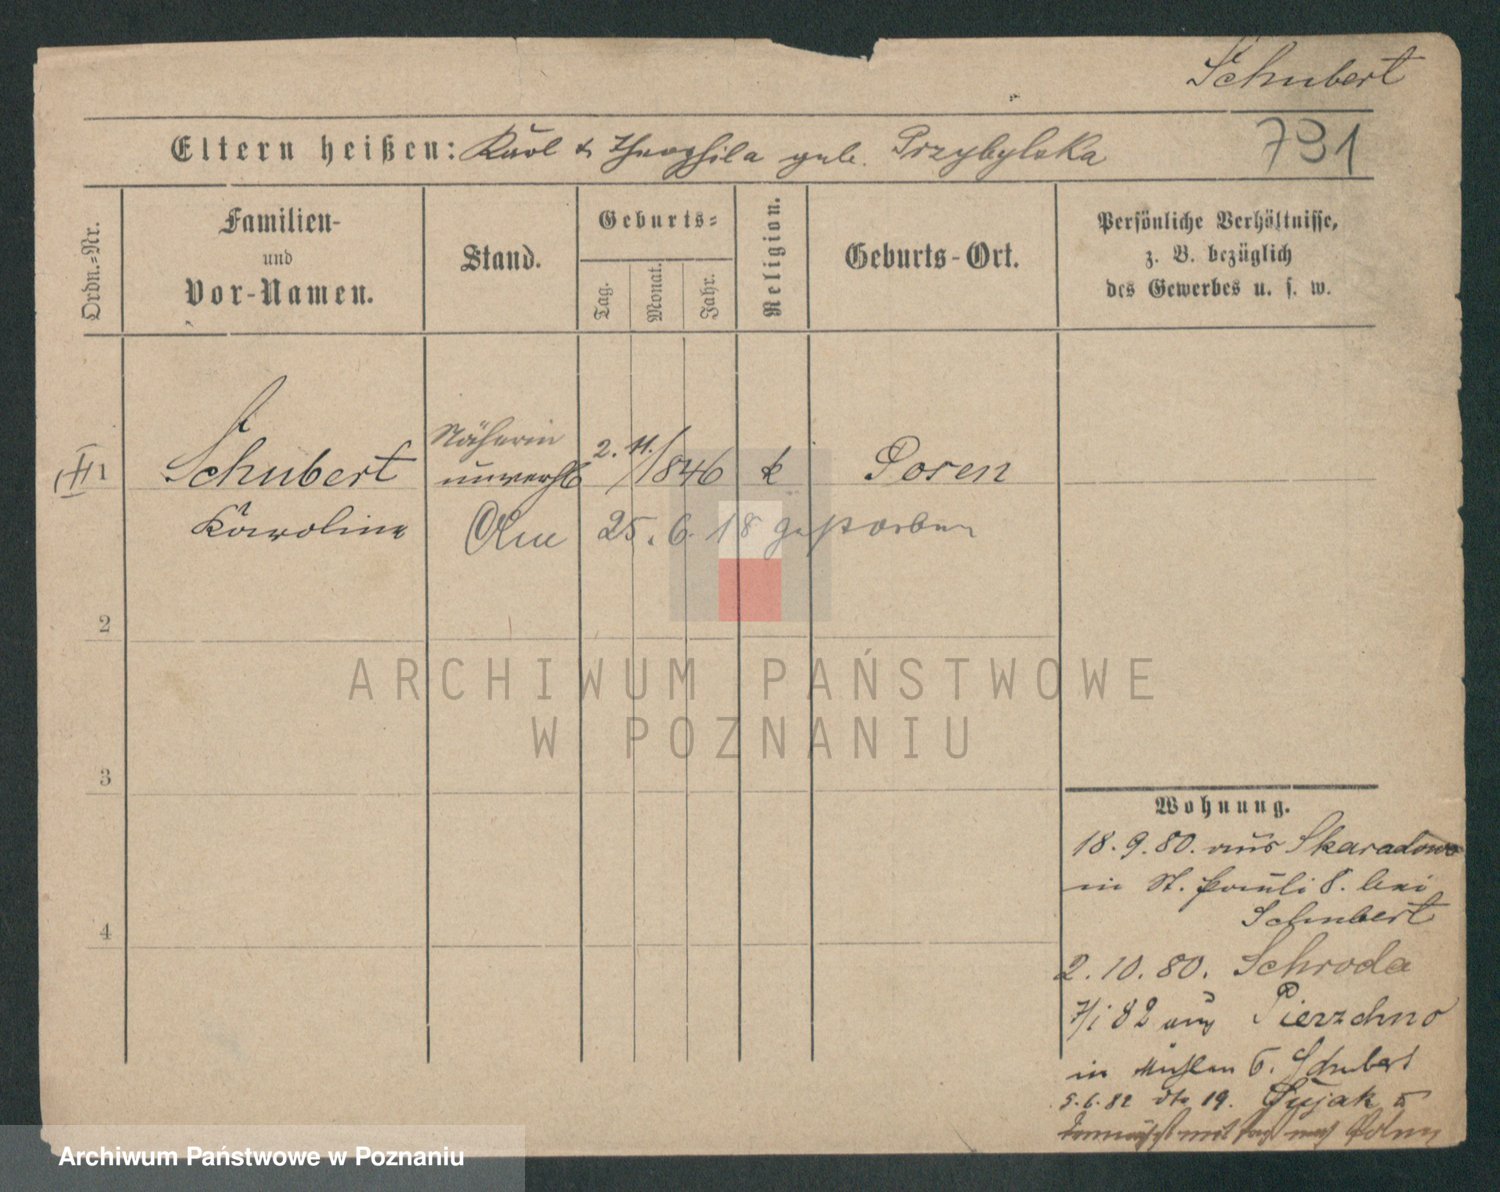 Schubert
Eltern heißen: Karl & Theophila geb. Przybylska
731
Ordn.-Nr.
Familien-
und
Vor-Namen.
Stand.
Geburts-
Tag.
Monat.
Jahr.
Religion.
Geburts-Ort.
Persönliche Verhältnisse,
z. B. bezüglich
des Gewerbes u. s. w.
1
Schubert
Karoline
Näherin
unverh
2. 11./1846
k
Posen
25. 6. 18 gestorben
2
3
4
Wohnung.
18. 9. 80. aus Skaradowo
in St. Pauli 8. bei
Schubert
2. 10. 80. Schroda
7/1 82 aus Pierzchno
in Mühlen 6. Schubert
5. 6. 82 dto 19. Bujak
ARCHIWUM PAŃSTWOWE
W POZNANIU
Archiwum Państwowe w Poznaniu